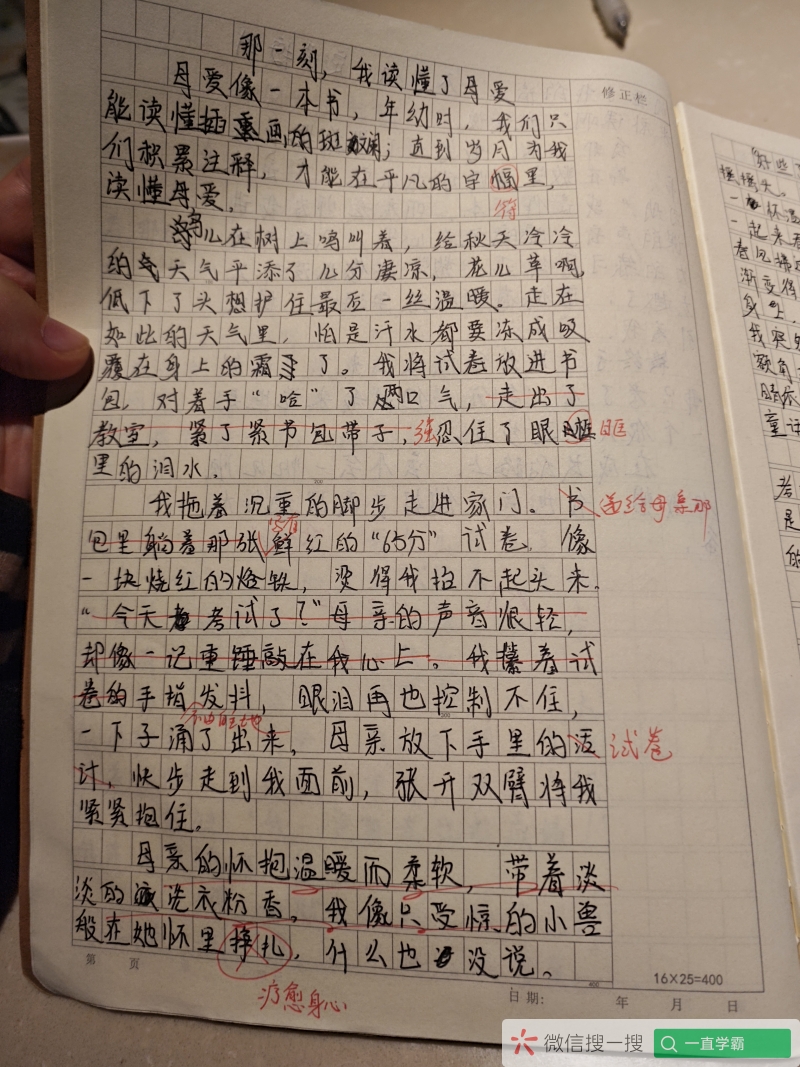 那一刻，我读懂了母爱
母爱像一本书，年幼时，我们只
能读懂插画的斑斓；直到岁月为我
们积累注释，才能在平凡的字幅里，
符
读懂母爱。
鸟儿在树上鸣叫着，给秋天冷冷
的天气平添了几分凄凉，花儿草啊，
低下了头想护住最后一丝温暖。走在
如此的天气里，怕是汗水都要冻成吸
覆在身上的霜了。我将试卷放进书
包，对着手“哈”了两口气，走出了
教室，紧了紧书包带子，强忍住了眼眶
眶
里的泪水。
我拖着沉重的脚步走进家门。书
递给母亲那
包里躺着那张鲜红的“65分”试卷，像
写有
一块烧红的烙铁，烫得我抬不起头来。
“今天考试了？”母亲的声音很轻，
却像一记重锤敲在我心上。我攥着试
卷的手指发抖，眼泪再也控制不住，
一下子涌了出来，母亲放下手里的活
试卷
计，快步走到我面前，张开双臂将我
紧紧抱住。
母亲的怀抱温暖而柔软，带着淡
淡的洗衣粉香，我像只受惊的小兽
般在她怀里挣扎，什么也没说。
疗愈身心
修正栏
第 页
16×25=400
日期： 年 月 日
好些
一怀温
一起来
渐变得
身上
额角
童话
考
是
的
微信搜一搜
一直学霸